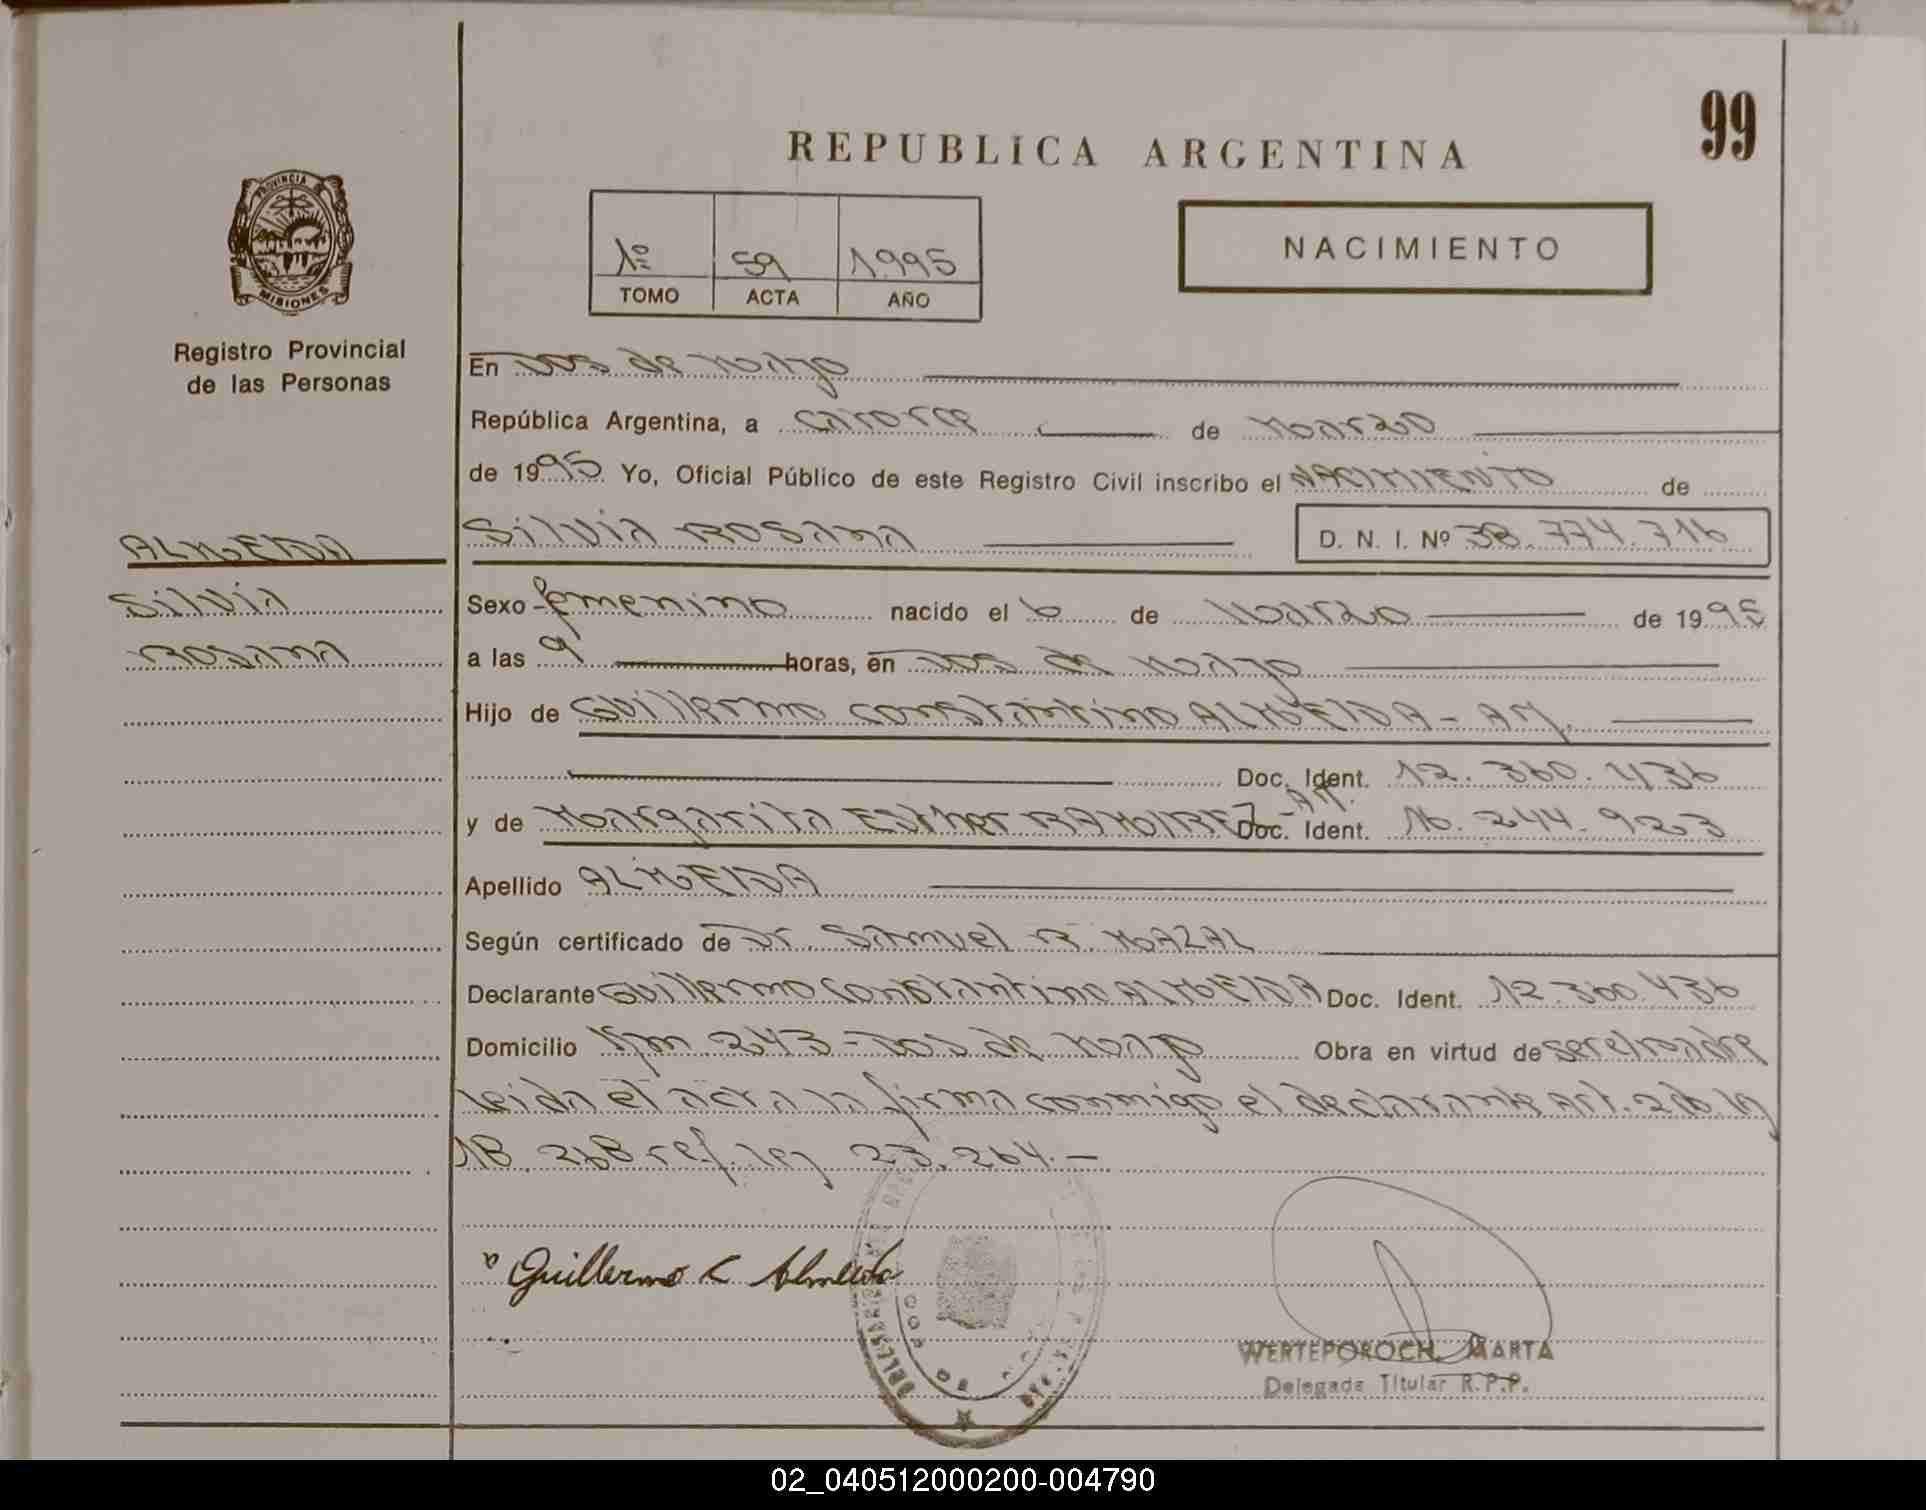 99
REPUBLICA ARGENTINA
PROVINCIA DE
MISIONES
Registro Provincial
de las Personas
1º 59 1995
TOMO ACTA AÑO
NACIMIENTO
En Dos de Mayo
República Argentina, a catorce de Marzo
de 1995 Yo, Oficial Público de este Registro Civil inscribo el NACIMIENTO de
ALMEIDA
Silvia Rosana D. N. I. Nº 38.774.716
Silvia
Rosana
Sexo femenino nacido el 6 de Marzo de 1995
a las 9 horas, en Dos de Mayo
Hijo de Guillermo Constantino ALMEIDA - Arg.
Doc. Ident. 12.360.436
y de Margarita Esther RAMIREZ - Arg. Doc. Ident. 16.244.923
Apellido ALMEIDA
Según certificado de Dr. Samuel R. MAZAL
Declarante Guillermo Constantino ALMEIDA Doc. Ident. 12.360.436
Domicilio Km 243 - Dos de Mayo Obra en virtud de ser el padre
leida el acta la firma conmigo el declarante Art. 2 de ley
18.268 ref. ley 23.264. -
Guillermo C Almeida
WERTEPOROCH, MARTA
Delegada Titular R.P.P.
02_040512000200-004790